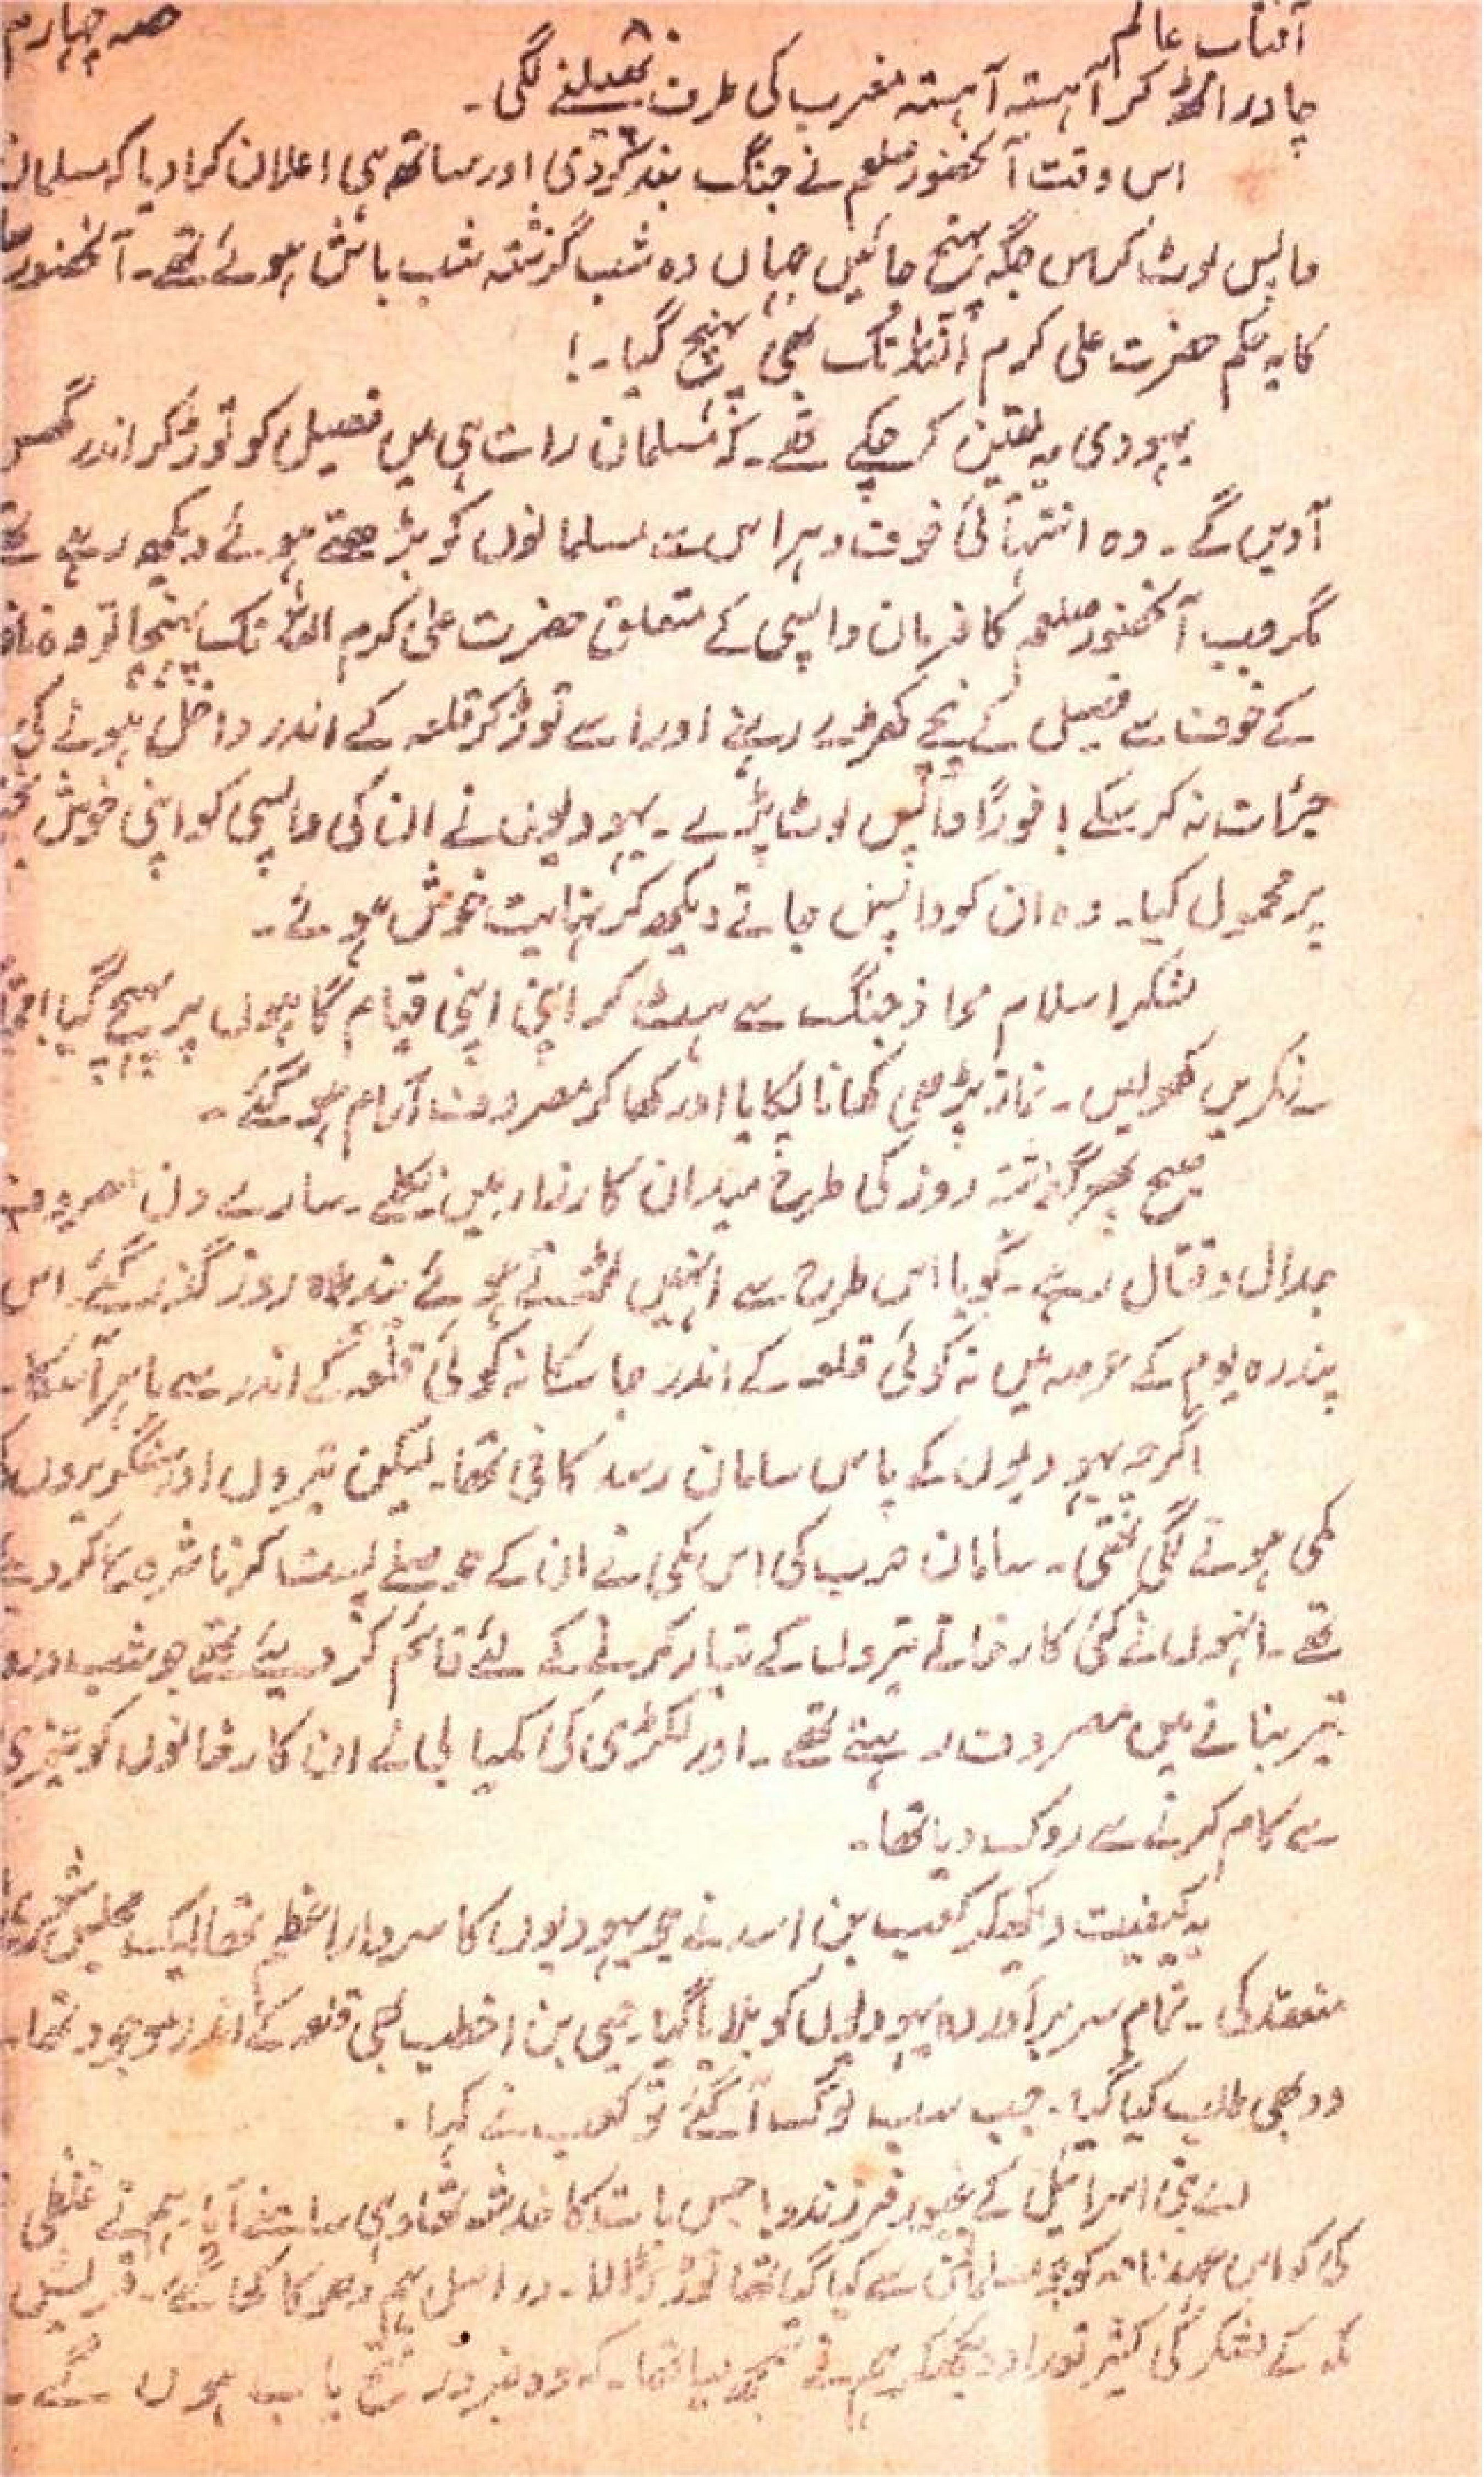 آفتاب عالم حصہ چہارم
چادر اوڑھ کر آہستہ آہستہ مغرب کی طرف پھیلنے لگی۔
اس وقت آنحضور صلعم نے جنگ بند کر دی اور ساتھ ہی اعلان کرا دیا کہ مسلمان
واپس لوٹ کر اس جگہ پہنچ جائیں جہاں وہ شب گزشتہ شب باش ہوئے تھے۔ آنحضور
کا یہ حکم حضرت علی کرم اللہ تک بھی پہنچ گیا۔!
یہودی یہ یقین کر چکے تھے۔ کہ مسلمان رات ہی میں فصیل کو توڑ کر اندر گھس
آویں گے۔ وہ انتہائی خوف و ہراس سے مسلمانوں کو بڑھتے ہوئے دیکھ رہے تھے
مگر جب آنحضور صلعم کا فرمان واپسی کے متعلق حضرت علی کرم اللہ تک پہنچا تو وہ
کے خوف سے فصیل کے نیچے کھڑے رہنے اور اسے توڑ کر قلعہ کے اندر داخل ہونے کی
جرأت نہ کر سکے! فوراً واپس لوٹ پڑے۔ یہودیوں نے ان کی واپسی کو اپنی خوش
پر محمول کیا۔ وہ ان کو واپس جاتے دیکھ کر نہایت خوش ہوئے۔
لشکر اسلام محاذ جنگ سے ہٹ کر اپنی اپنی قیام گاہوں پر پہنچ گیا
نے کمریں کھولیں۔ نماز پڑھی کھانا پکایا اور کھا کر مصروف آرام ہو گئے۔
صبح پھر گزشتہ روز کی طرح میدان کارزار میں نکلے۔ سارے دن مصروف
جدال و قتال رہے۔ گویا اس طرح سے انہیں لڑتے ہوئے پندرہ روز گزر گئے۔ اس
پندرہ یوم کے عرصہ میں نہ کوئی قلعہ کے اندر جا سکا نہ کوئی قلعہ کے اندر سے باہر آ سکا۔
اگرچہ یہودیوں کے پاس سامان رسد کافی تھا۔ لیکن تیروں اور سنگریزوں
کمی ہونے لگی تھی۔ سامان حرب کی اس کمی نے ان کے حوصلے پست کرنا شروع کر دیئے
تھے۔ انہوں نے کئی کارخانے تیروں کے تیار کرنے کے لئے قائم کر دیئے تھے جو شب و روز
تیر بنانے میں مصروف رہتے تھے۔ اور لکڑی کی کمیابی نے ان کارخانوں کو تیزی
سے کام کرنے سے روک دیا تھا۔
یہ کیفیت دیکھ کر کعب بن اسد نے جو یہودیوں کا سردار اعظم تھا ایک مجلس شوریٰ
منعقد کی۔ تمام سربرآوردہ یہودیوں کو بلایا گیا۔ حیی بن اخطب بھی قلعہ کے اندر موجود تھا۔
وہ بھی طلب کیا گیا۔ جب سب لوگ آ گئے تو کعب نے کہا۔
اے بنی اسرائیل کے غیور فرزندو! جس بات کا خدشہ تھا وہی سامنے آیا۔ ہم نے غلطی
کی کہ اس عہد نامہ کو جو مسلمانوں سے کیا گیا تھا توڑ ڈالا۔ دراصل ہم دھوکا کھا گئے۔ قریش
مکہ کے لشکر کی کثیر تعداد دیکھ کر ہم نے سمجھ لیا تھا۔ کہ وہ ضرور فتح یاب ہوں گے۔